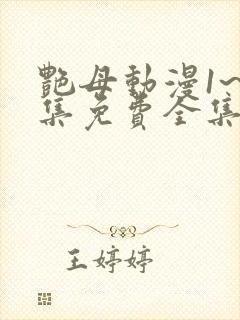 艷母動漫1~
集免費全集
王婷婷